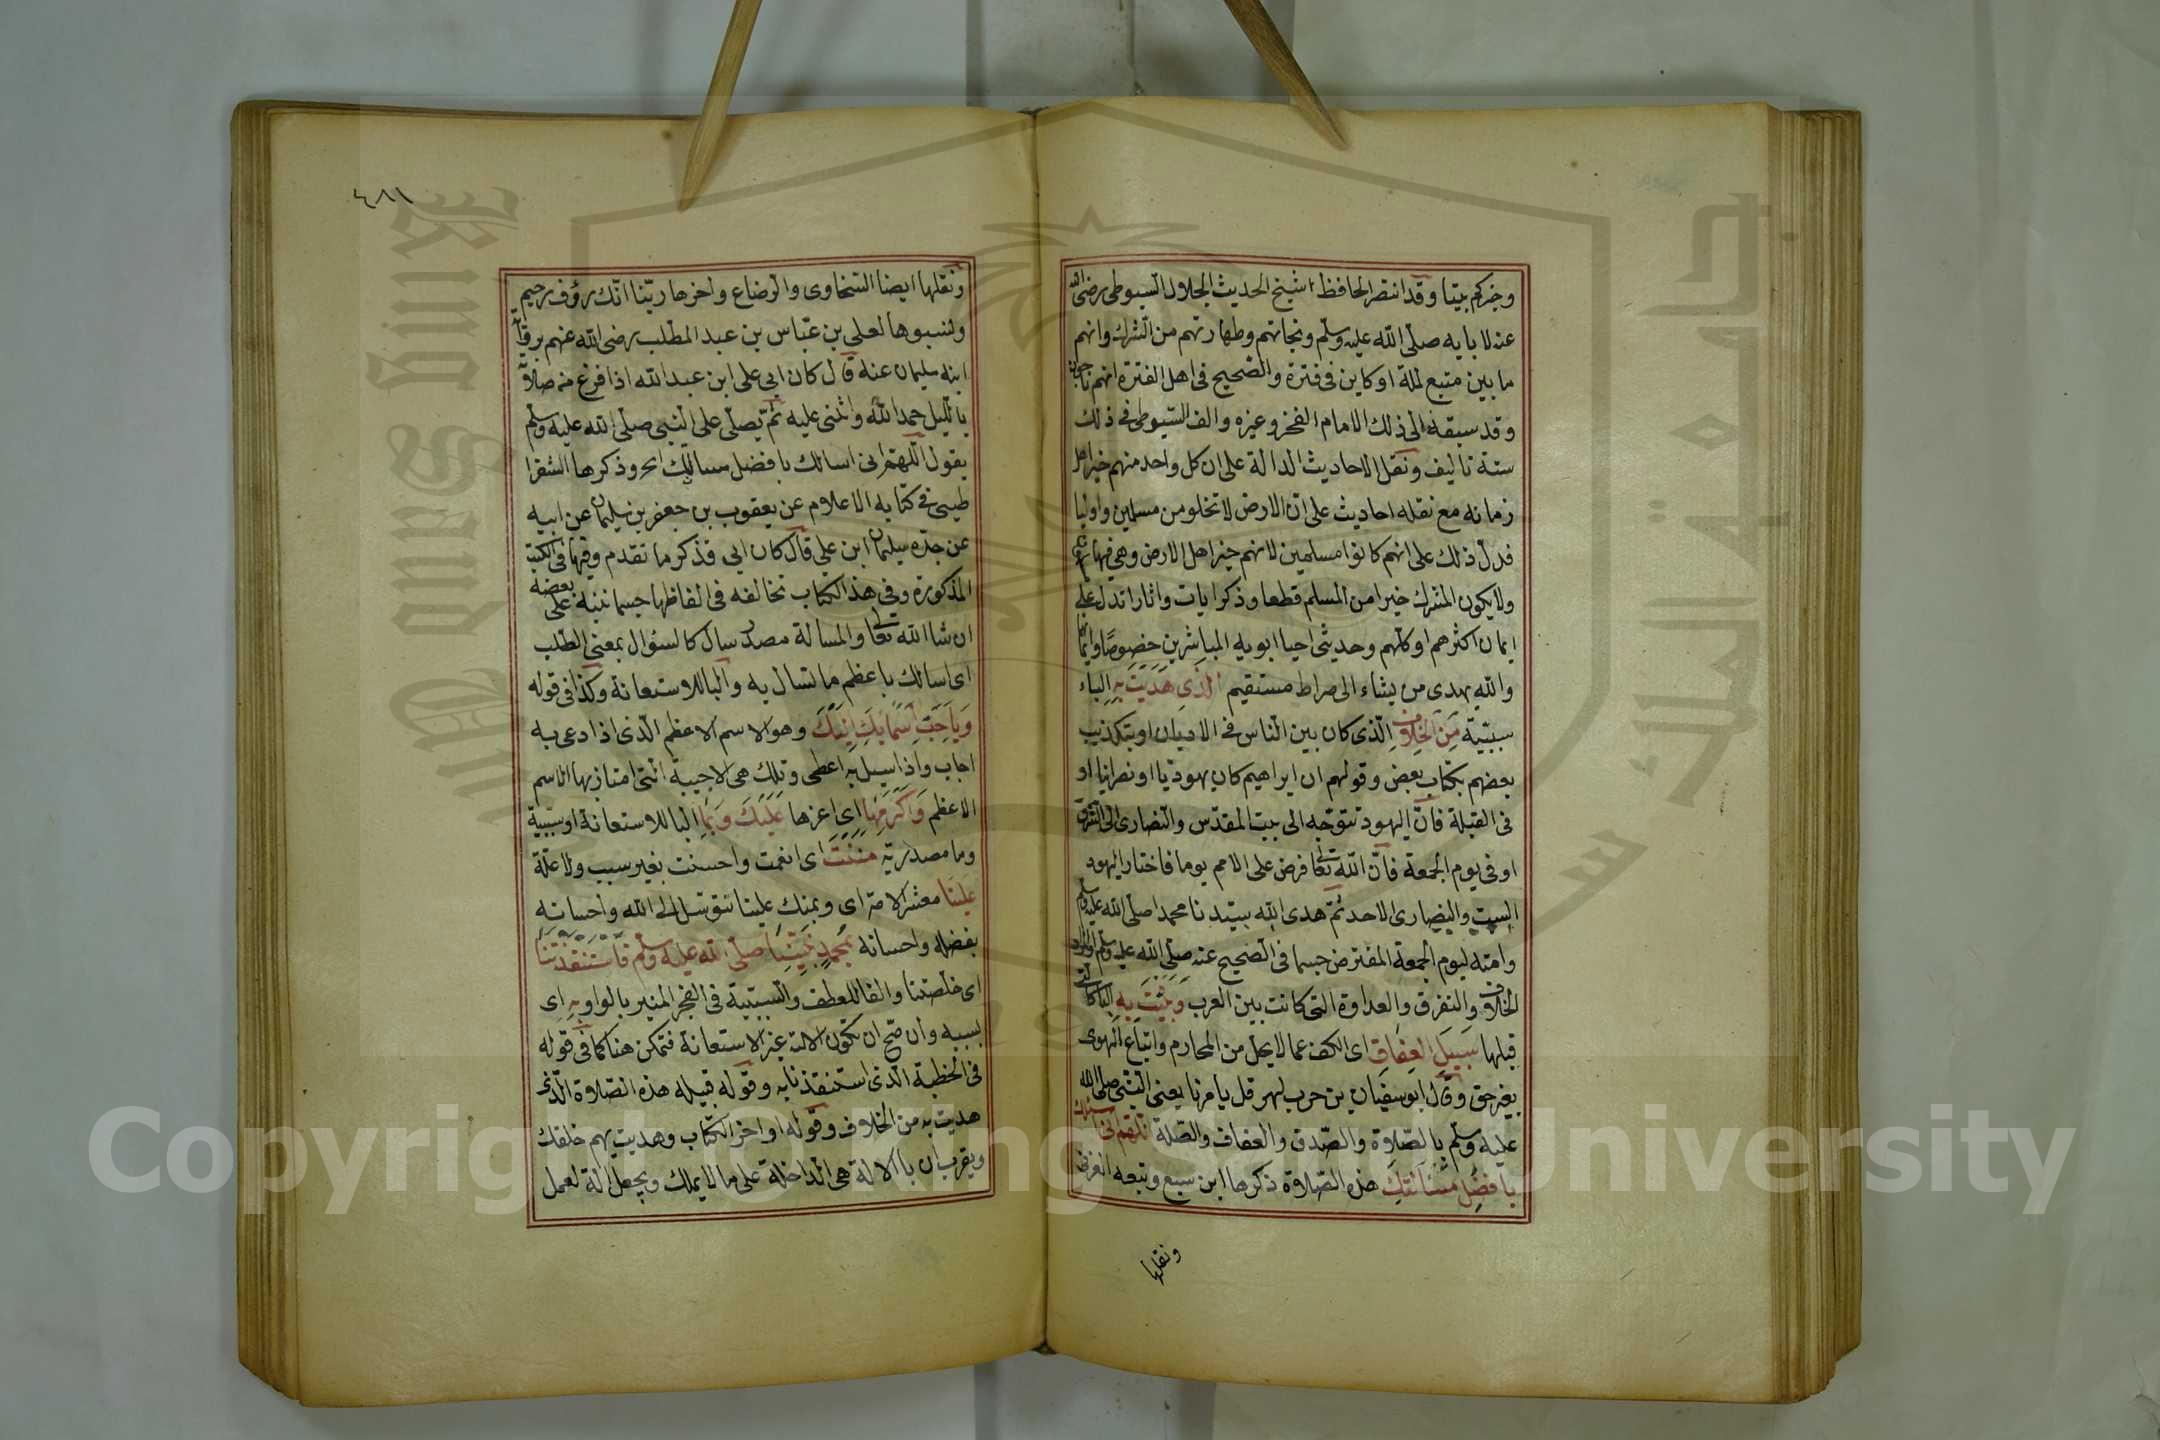 وخيركم بيتا وقد انتصر الحافظ شيخ الحديث الجلال السيوطي رضي الله
عنه لابايه صلى الله عليه وسلم ونجاتهم وطهارتهم من الشرك وانهم
ما بين متبع لملة او كاين في فترة والصحيح في اهل الفترة انهم ناجون
وقد سبقه الى ذلك الامام الفخر وغيره والف السيوطي في ذلك
ستة تاليف ونقل الاحاديث الدالة على ان كل واحد منهم خير اهل
زمانه مع نقله احاديث على ان الارض لا تخلو من مسلمين واوليا
فدل ذلك على انهم كانوا مسلمين لانهم خير اهل الارض وهي فيها
ولا يكون المشرك خيرا من المسلم قطعا وذكر ايات واثارا تدل على
ايمان اكثرهم او كلهم وحديثى احيا ابويه المباشرين خصوصا وايمانهما
والله يهدى من يشاء الى صراط مستقيم الَّذِي هَدَيْتَ بِهِ الباء
سببيّة مِنَ الْخِلَافِ الّذى كان بين الناس في الاديان او بتكذيب
بعضهم بكتاب بعض وقولهم ان ابراهيم كان يهوديا او نصرانيا او
في القبلة فانّ اليهود تتوجه الى بيت المقدس والنصارى الى الشرق
او في يوم الجمعة فانّ الله تعا فرض على الامم يوما فاختار اليهود
السبت والنصارى الاحد ثمّ هدى الله سيّدنا محمدا صلى الله عليه وسلم
وامته ليوم الجمعة المفترض حسبما في الصحيح عنه صلى الله عليه وسلم
الخلاف والتفرق والعداوة التي كانت بين العرب وَبَيَّنْتَ بِهِ البا كالتي
قبلها سَبِيلَ الْعِفَافِ اى الكف عما لا يحل من المحارم واتباع الهوى
بغير حق وقال ابو سفيان بن حرب لهرقل يامرنا يعنى النبى صلى الله
عليه وسلم بالصلاة والصدق والعفاف والصلة اللهم انى اسئلك
بِاَفْضَلِ مَسْأَلَتِكَ هذه الصلاة ذكرها ابن سبع وتبعه العزفى
ونقلها
٤٨١
ونقلها ايضا السخاوى والرضاع واخرها ربّنا انّك رؤف رحيم
ونسبوها لعلي بن عبّاس بن عبد المطلب رضى الله عنهم برواية
ابنه سليمان عنه قال كان ابى على ابن عبد الله اذا فرغ من صلاته
بالليل حمد الله واثنى عليه ثمّ يصلّى على النّبى صلى الله عليه وسلم
يقول اللهم انى اسالك بافضل مسالتك الخ وذكرها الشقرا
طيسى في كتابه الاعلام عن يعقوب بن جعفر بن سليمان عن ابيه
عن جدّه سليمان ابن على قال كان ابى فذكر ما تقدم وفيها في الكتب
المذكورة وفي هذا الكتاب تخالفه في الفاظها حسبما ننبه على بعضه
ان شا الله تعا والمسالة مصدر سال كالسؤال بمعنى الطلب
اى اسالك باعظم ما تسال به والبا للاستعانة وكذا فى قوله
وَبِاَحَبِّ اَسْمَائِكَ اِلَيْكَ وهو الاسم الاعظم الّذى اذا دعى به
اجاب واذا سيل به اعطى وتلك هى الاحبية التى امتاز بها الاسم
الاعظم وَاَكْرَمِهَا اى اعزها عَلَيْكَ وَبِمَا البا للاستعانة او سببية
وما مصدرية مَنَنْتَ اى انعمت واحسنت بغير سبب ولا علة
عَلَيْنَا معشر الامة اى وبمنك علينا نتوسل الى الله واحسانه
بفضله واحسانه بِمُحَمَّدٍ نَبِيِّنَا صلى الله عليه وسلم فَاسْتَنْقَذْتَنَا
اى خلصتنا والفا للعطف والسببية في الفجر المنير بالواو بِهِ اى
بسببه وان صح ان تكون الالة غير الاستعانة فتمكن هنا كما في قوله
في الخطبة الّذى استنقذنا به وقوله قبيله هذه الصلاة الّذى
هديت به من الخلاف وقوله اواخر الكتاب وهديت بهم خلقك
ويقرب ان باالالة هى الداخلة على ما لا يملك ويجعل الة لعمل
Copyright © King Saud University